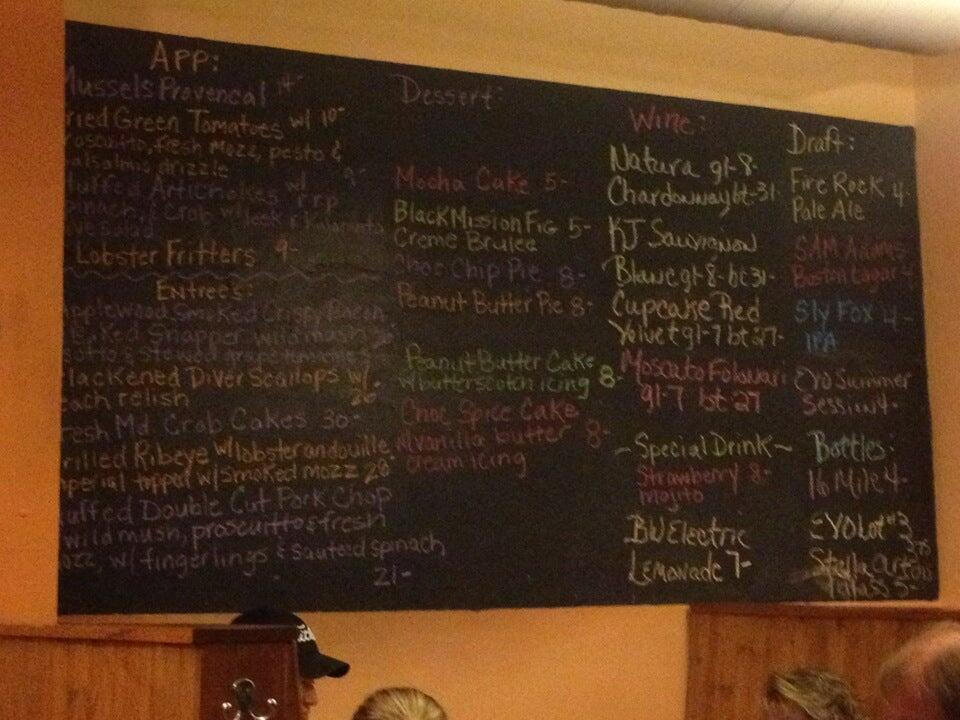 APP:
Mussels Provencal 14-
ried Green Tomatoes w/ 10-
rosciutto, fresh mozz, pesto &
alsamic drizzle
tuffed Artichokes w/ 9-
pinach, & Crab w/ leek &
Lobster Fritters 9-
Entrees:
pplewood Smoked Crispy Bacon
Red Snapper wild mush
otto & stewed grape tomatoes
lackened Diver Scallops w/
each relish 26-
resh Md. Crab Cakes 30-
rilled Ribeye w/lobster andouille
mperial toppd w/smoked mozz 28-
uffed Double Cut Pork Chop
wild mush, proscuitto & fresh
ozz, w/ fingerlings & sauteed spinach
21-
Dessert:
Mocha Cake 5-
Black Mission Fig 5-
Creme Brulee
Choc Chip Pie 8-
Peanut Butter Pie 8-
Peanut Butter Cake
w/butterscotch icing 8-
Choc Spice Cake
w/vanilla butter 8-
cream icing
Wine:
Natura gl-8-
Chardonnay bt-31-
KJ Sauvignon
Blanc gl-8- bt 31-
Cupcake Red
Velvet gl-7 bt 27-
Moscato Folonari
gl-7 bt 27
~Special Drink~
Strawberry 8-
mojito
BW Electric
Lemonade 7-
Draft:
Fire Rock 4-
Pale Ale
SAM Adams
Boston Lager 4-
Sly Fox 4-
IPA
Evo Summer
Session 4-
Bottles:
16 Mile 4-
EVO Lot #3
3.75
Stella Artois